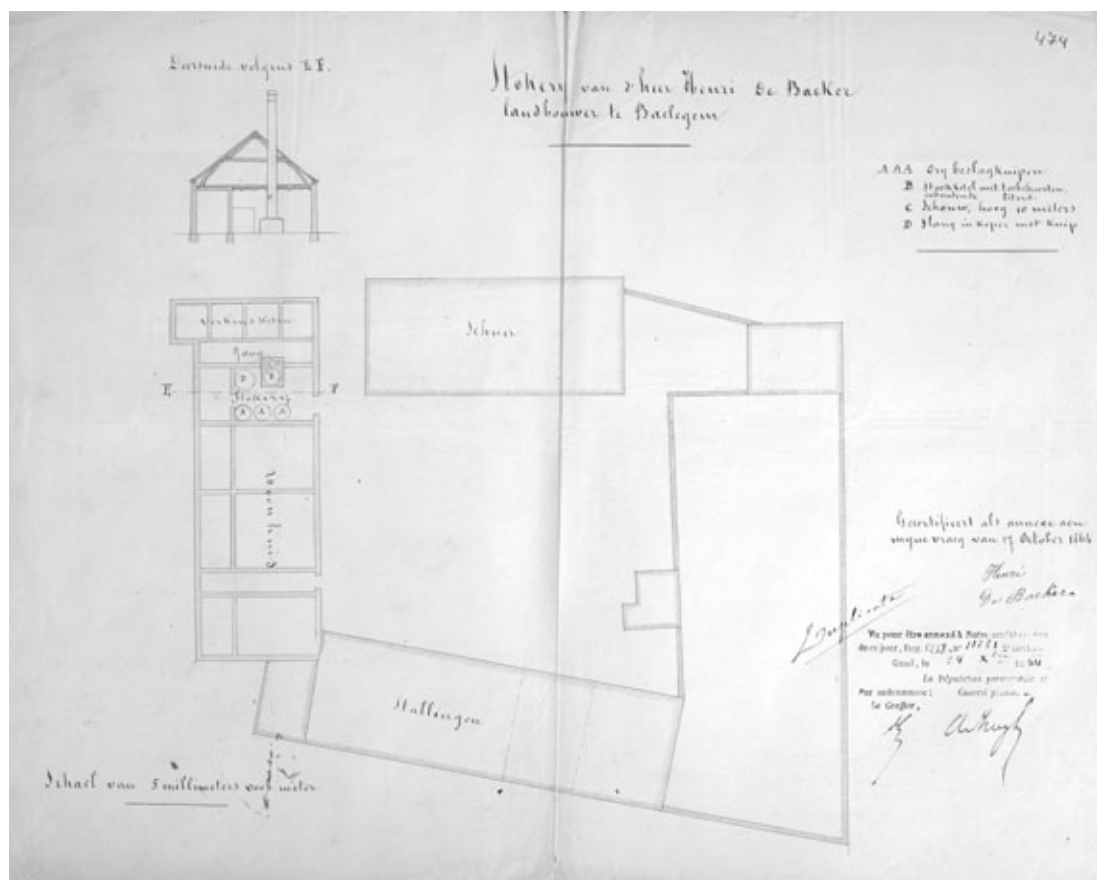 474
Doorsnede volgens E F.
Stokery van d'heer Henri De Backer
landbouwer te Baelegem
A A A Dry beslagkuipen
B Stookketel met
C Schouw, hoog 10 meters
D Slang in koper met Kuip
Schuer
Gang
E F
D B
Stokery
A A A
Woon huis
Stallingen
Schael van 5 millimeters voor meter
Gecertifieert als annexe aen
myne vraeg van 17 October 1864
Henri
De Backer
Duplicata
Vu pour être annexé à Notre
de ce jour,
Gand, le
La Députation permanente
Par ordonnance:
Le Greffier,